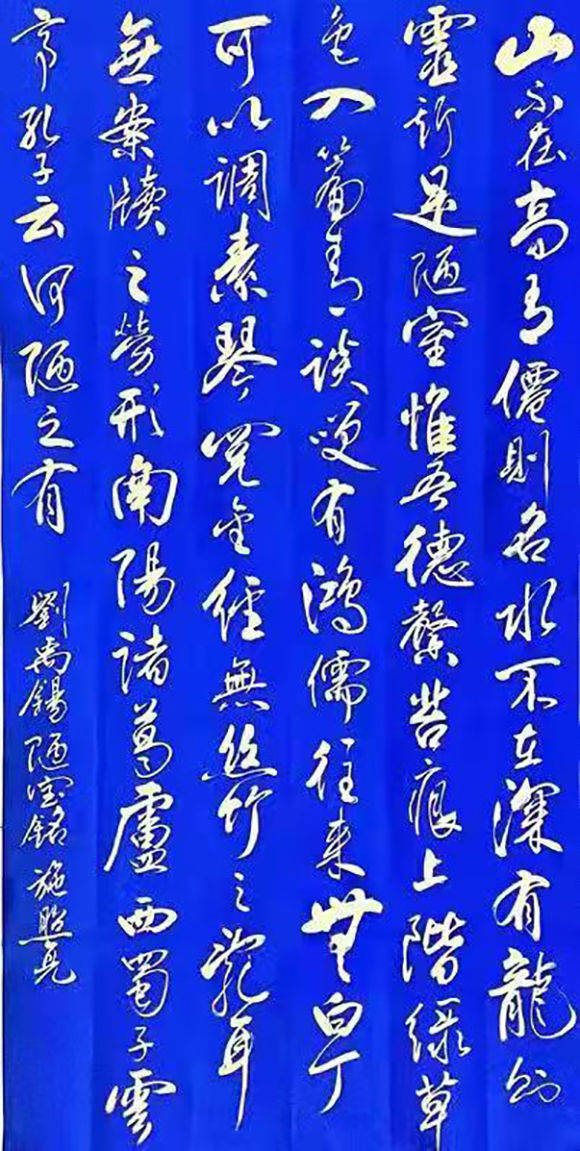 山不在高有僊則名水不在深有龍則
靈斯是陋室惟吾德馨苔痕上階緑草
色入簾青談笑有鴻儒往来無白丁
可以调素琴閲金経無丝竹之亂耳
無案牍之勞形南陽諸葛廬西蜀子雲
亭孔子云何陋之有 劉禹錫陋室銘 施